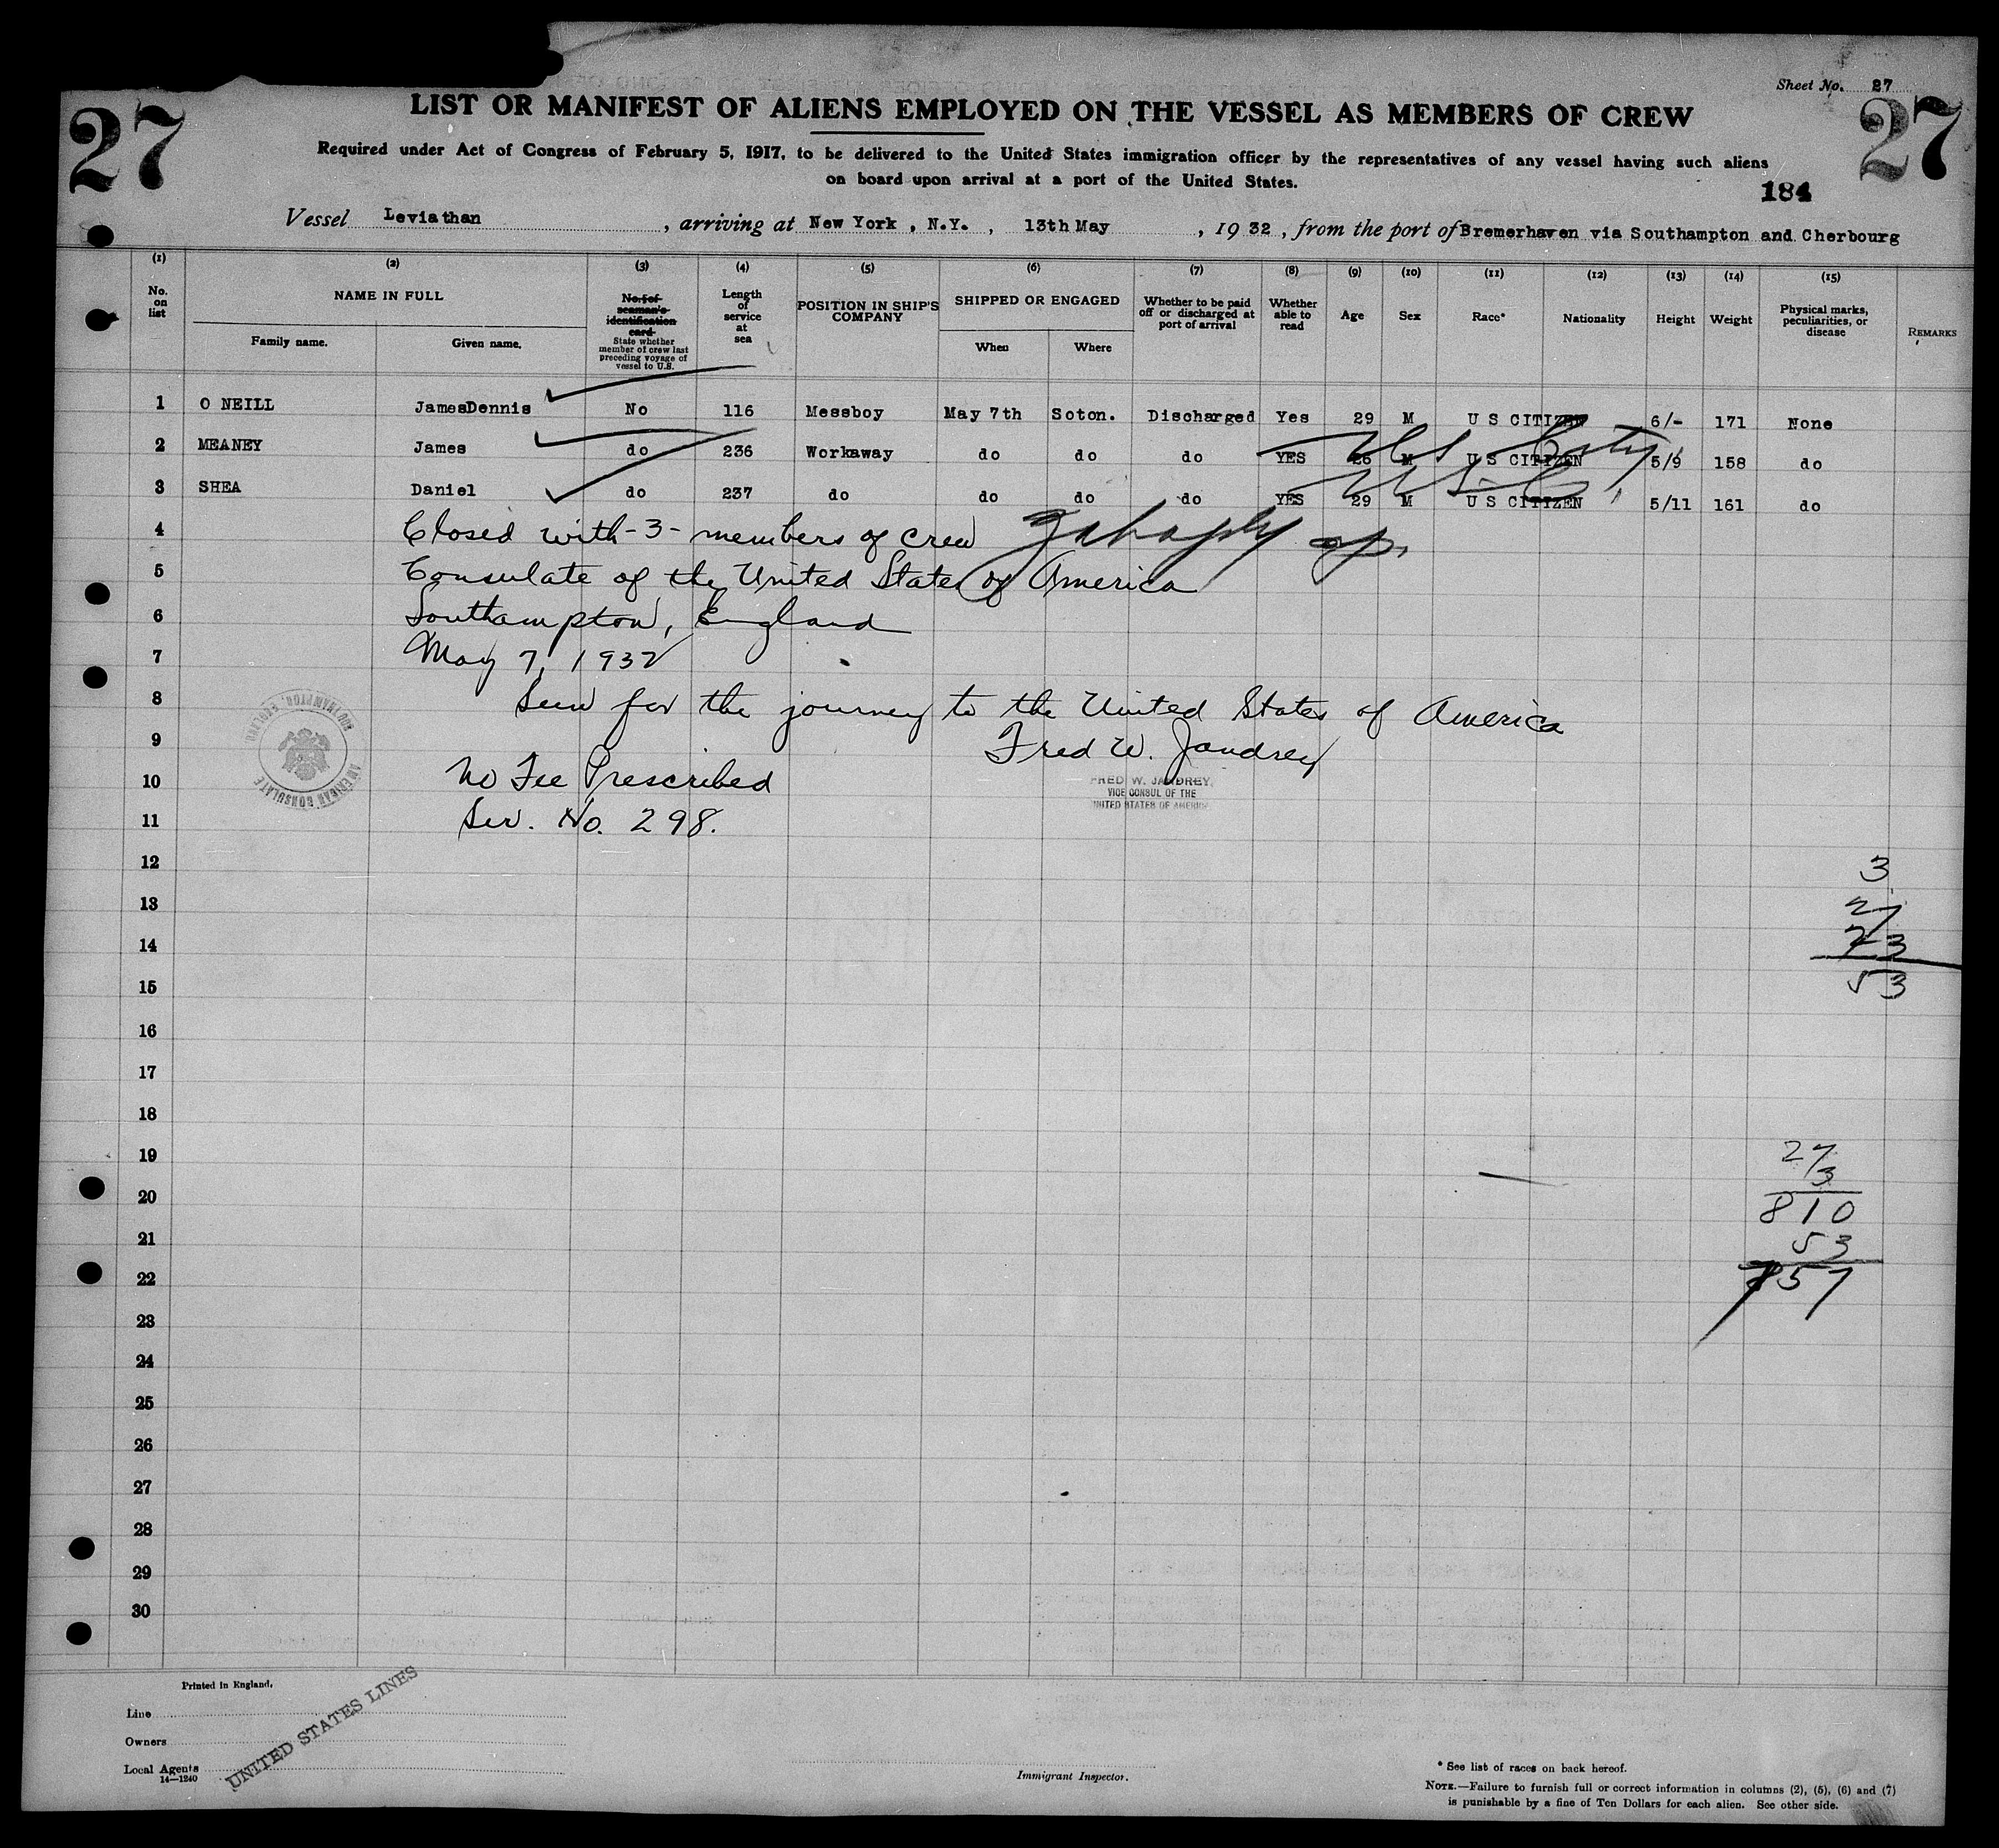 Sheet No. 27
27
27
LIST OR MANIFEST OF ALIENS EMPLOYED ON THE VESSEL AS MEMBERS OF CREW
Required under Act of Congress of February 5, 1917, to be delivered to the United States immigration officer by the representatives of any vessel having such aliens
on board upon arrival at a port of the United States.
184
Vessel Leviathan, arriving at New York, N.Y., 13th May, 1932, from the port of Bremerhaven via Southampton and Cherbourg
(1) (2) (3) (4) (5) (6) (7) (8) (9) (10) (11) (12) (13) (14) (15)
No. on list
NAME IN FULL
Family name.
Given name.
No. of seaman's identification card.
State whether member of crew last preceding voyage of vessel to U.S.
Length of service at sea
POSITION IN SHIP'S COMPANY
SHIPPED OR ENGAGED
When
Where
Whether to be paid off or discharged at port of arrival
Whether able to read
Age
Sex
Race*
Nationality
Height
Weight
Physical marks, peculiarities, or disease
REMARKS
1 O NEILL JamesDennis No 116 Messboy May 7th Soton. Discharged Yes 29 M U S CITIZEN 6/- 171 None
2 MEANEY James do 236 Workaway do do do YES 26 M U S CITIZEN 5/9 158 do
3 SHEA Daniel do 237 do do do do YES 29 M U S CITIZEN 5/11 161 do
4 Closed with -3- members of crew
5 Consulate of the United States of America
6 Southampton, England
7 May 7, 1932
8 Seen for the journey to the United States of America
9 Fred W. Jandrey
10 No Fee Prescribed
FRED W. JANDREY,
VICE CONSUL OF THE
UNITED STATES OF AMERICA
11 Ser. No. 298.
AMERICAN CONSULATE
SOUTHAMPTON, ENGLAND
12
13
14
15
16
17
18
19
20
21
22
23
24
25
26
27
28
29
30
3
27
23
53
27
3
810
53
757
Printed in England.
Line
Owners
Local Agents
14—1240
UNITED STATES LINES
Immigrant Inspector.
* See list of races on back hereof.
NOTE.—Failure to furnish full or correct information in columns (2), (5), (6) and (7)
is punishable by a fine of Ten Dollars for each alien. See other side.